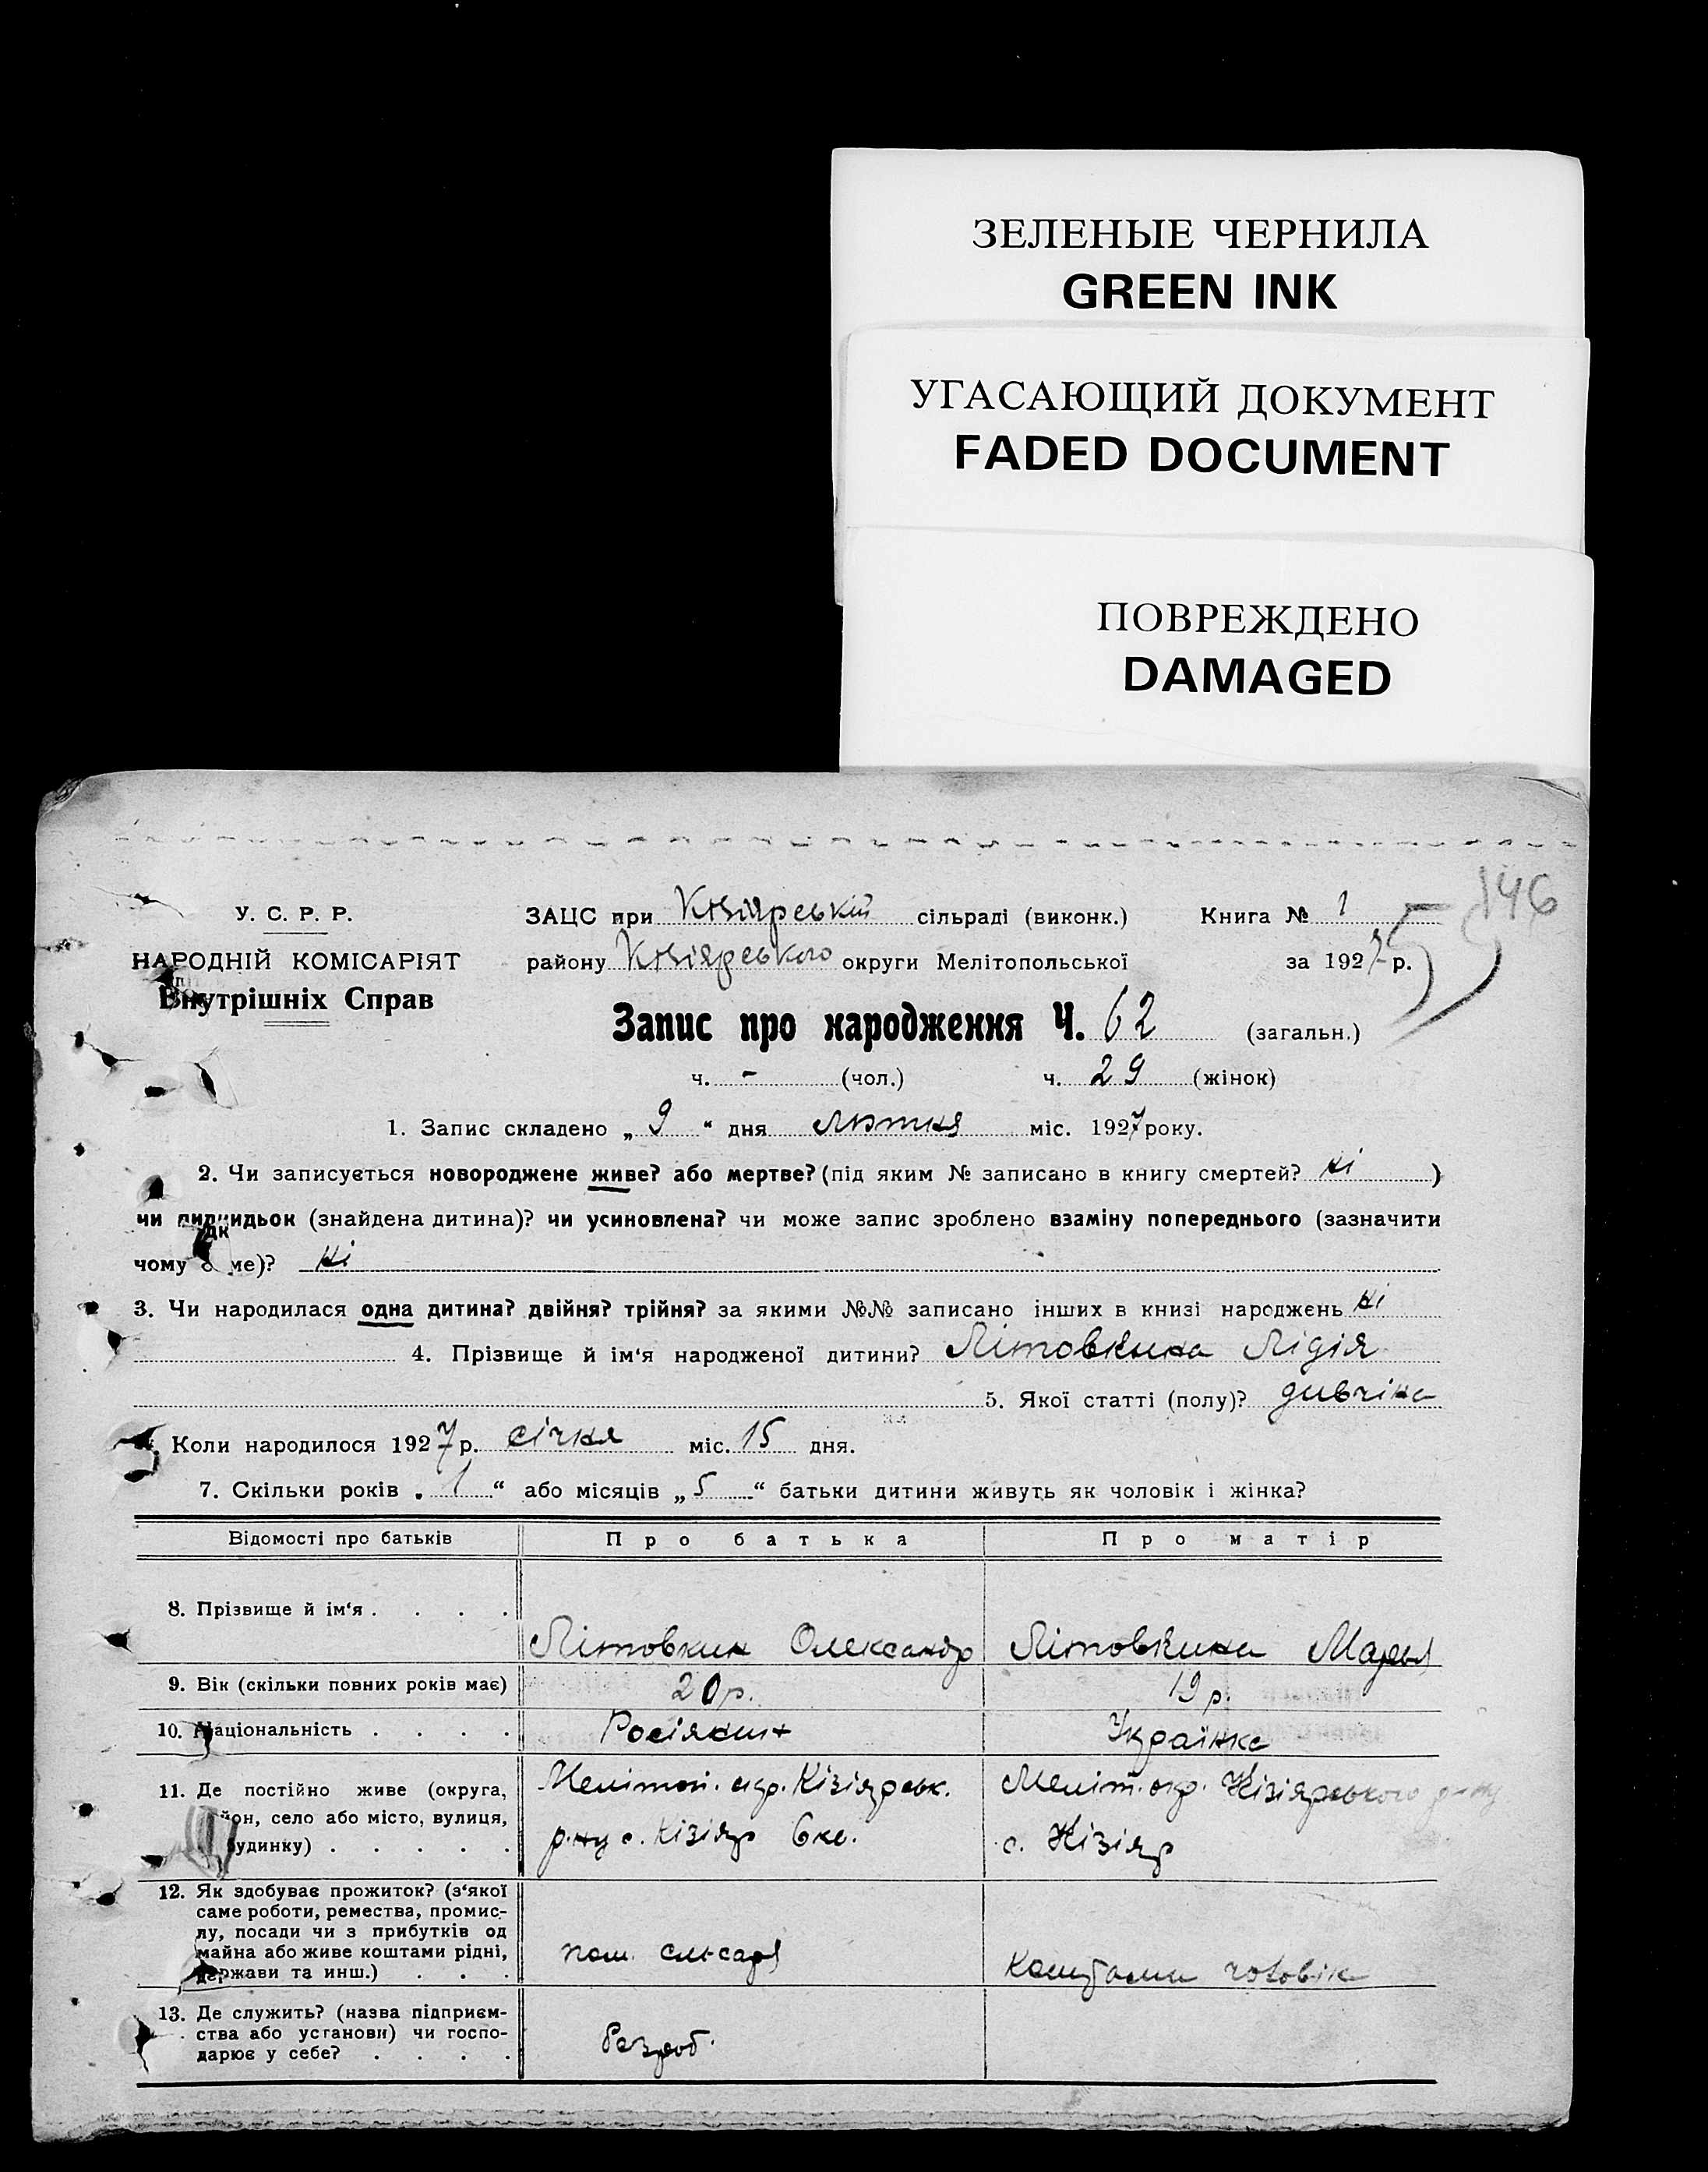 ЗЕЛЕНЫЕ ЧЕРНИЛА
GREEN INK
УГАСАЮЩИЙ ДОКУМЕНТ
FADED DOCUMENT
ПОВРЕЖДЕНО
DAMAGED
146
55
У. С. Р. Р.
НАРОДНІЙ КОМІСАРІЯТ
Внутрішніх Справ
ЗАЦС при Кізіярській сільраді (виконк.) Книга № 1
району Кізіярського округи Мелітопольської за 1927 р.
Запис про народження Ч. 62 (загальн.)
ч. - (чол.) ч. 29 (жінок)
1. Запис складено „ 9 “ дня лютня міс. 1927 року.
2. Чи записується новороджене живе? або мертве? (під яким № записано в книгу смертей? ні )
чи підкидьок (знайдена дитина)? чи усиновлена? чи може запис зроблено взаміну попереднього (зазначити
чому ме)? ні
3. Чи народилася одна дитина? двійня? трійня? за якими №№ записано інших в книзі народжень ні
4. Прізвище й ім‘я народженої дитини? Літовкина Лідія
5. Якої статті (полу)? дивчіна
Коли народилося 1927 р. січня міс. 15 дня.
7. Скільки років „ 1 “ або місяців „ 5 “ батьки дитини живуть як чоловік і жінка?
Відомості про батьків Про батька Про матір
8. Прізвище й ім‘я . . . . Літовкин Олександр Літовкина Марья
9. Вік (скільки повних років має) 20 р. 19 р.
10. Національність . . . . Росіянин Українка
11. Де постійно живе (округа,
район, село або місто, вулиця,
будинку) . . . . .
Меліт. окр. Кізіярськ.
р-ну с. Кізіяр
Меліт. окр. Кізіярського р-ну
с. Кізіяр
12. Як здобуває прожиток? (з‘якої
саме роботи, ремества, промис-
лу, посади чи з прибутків од
майна або живе коштами рідні,
держави та инш.) . . .
пом. слюсаря
Коштами чоловік
13. Де служить? (назва підприєм-
ства або установи) чи госпо-
дарює у себе? . . . .
безроб.